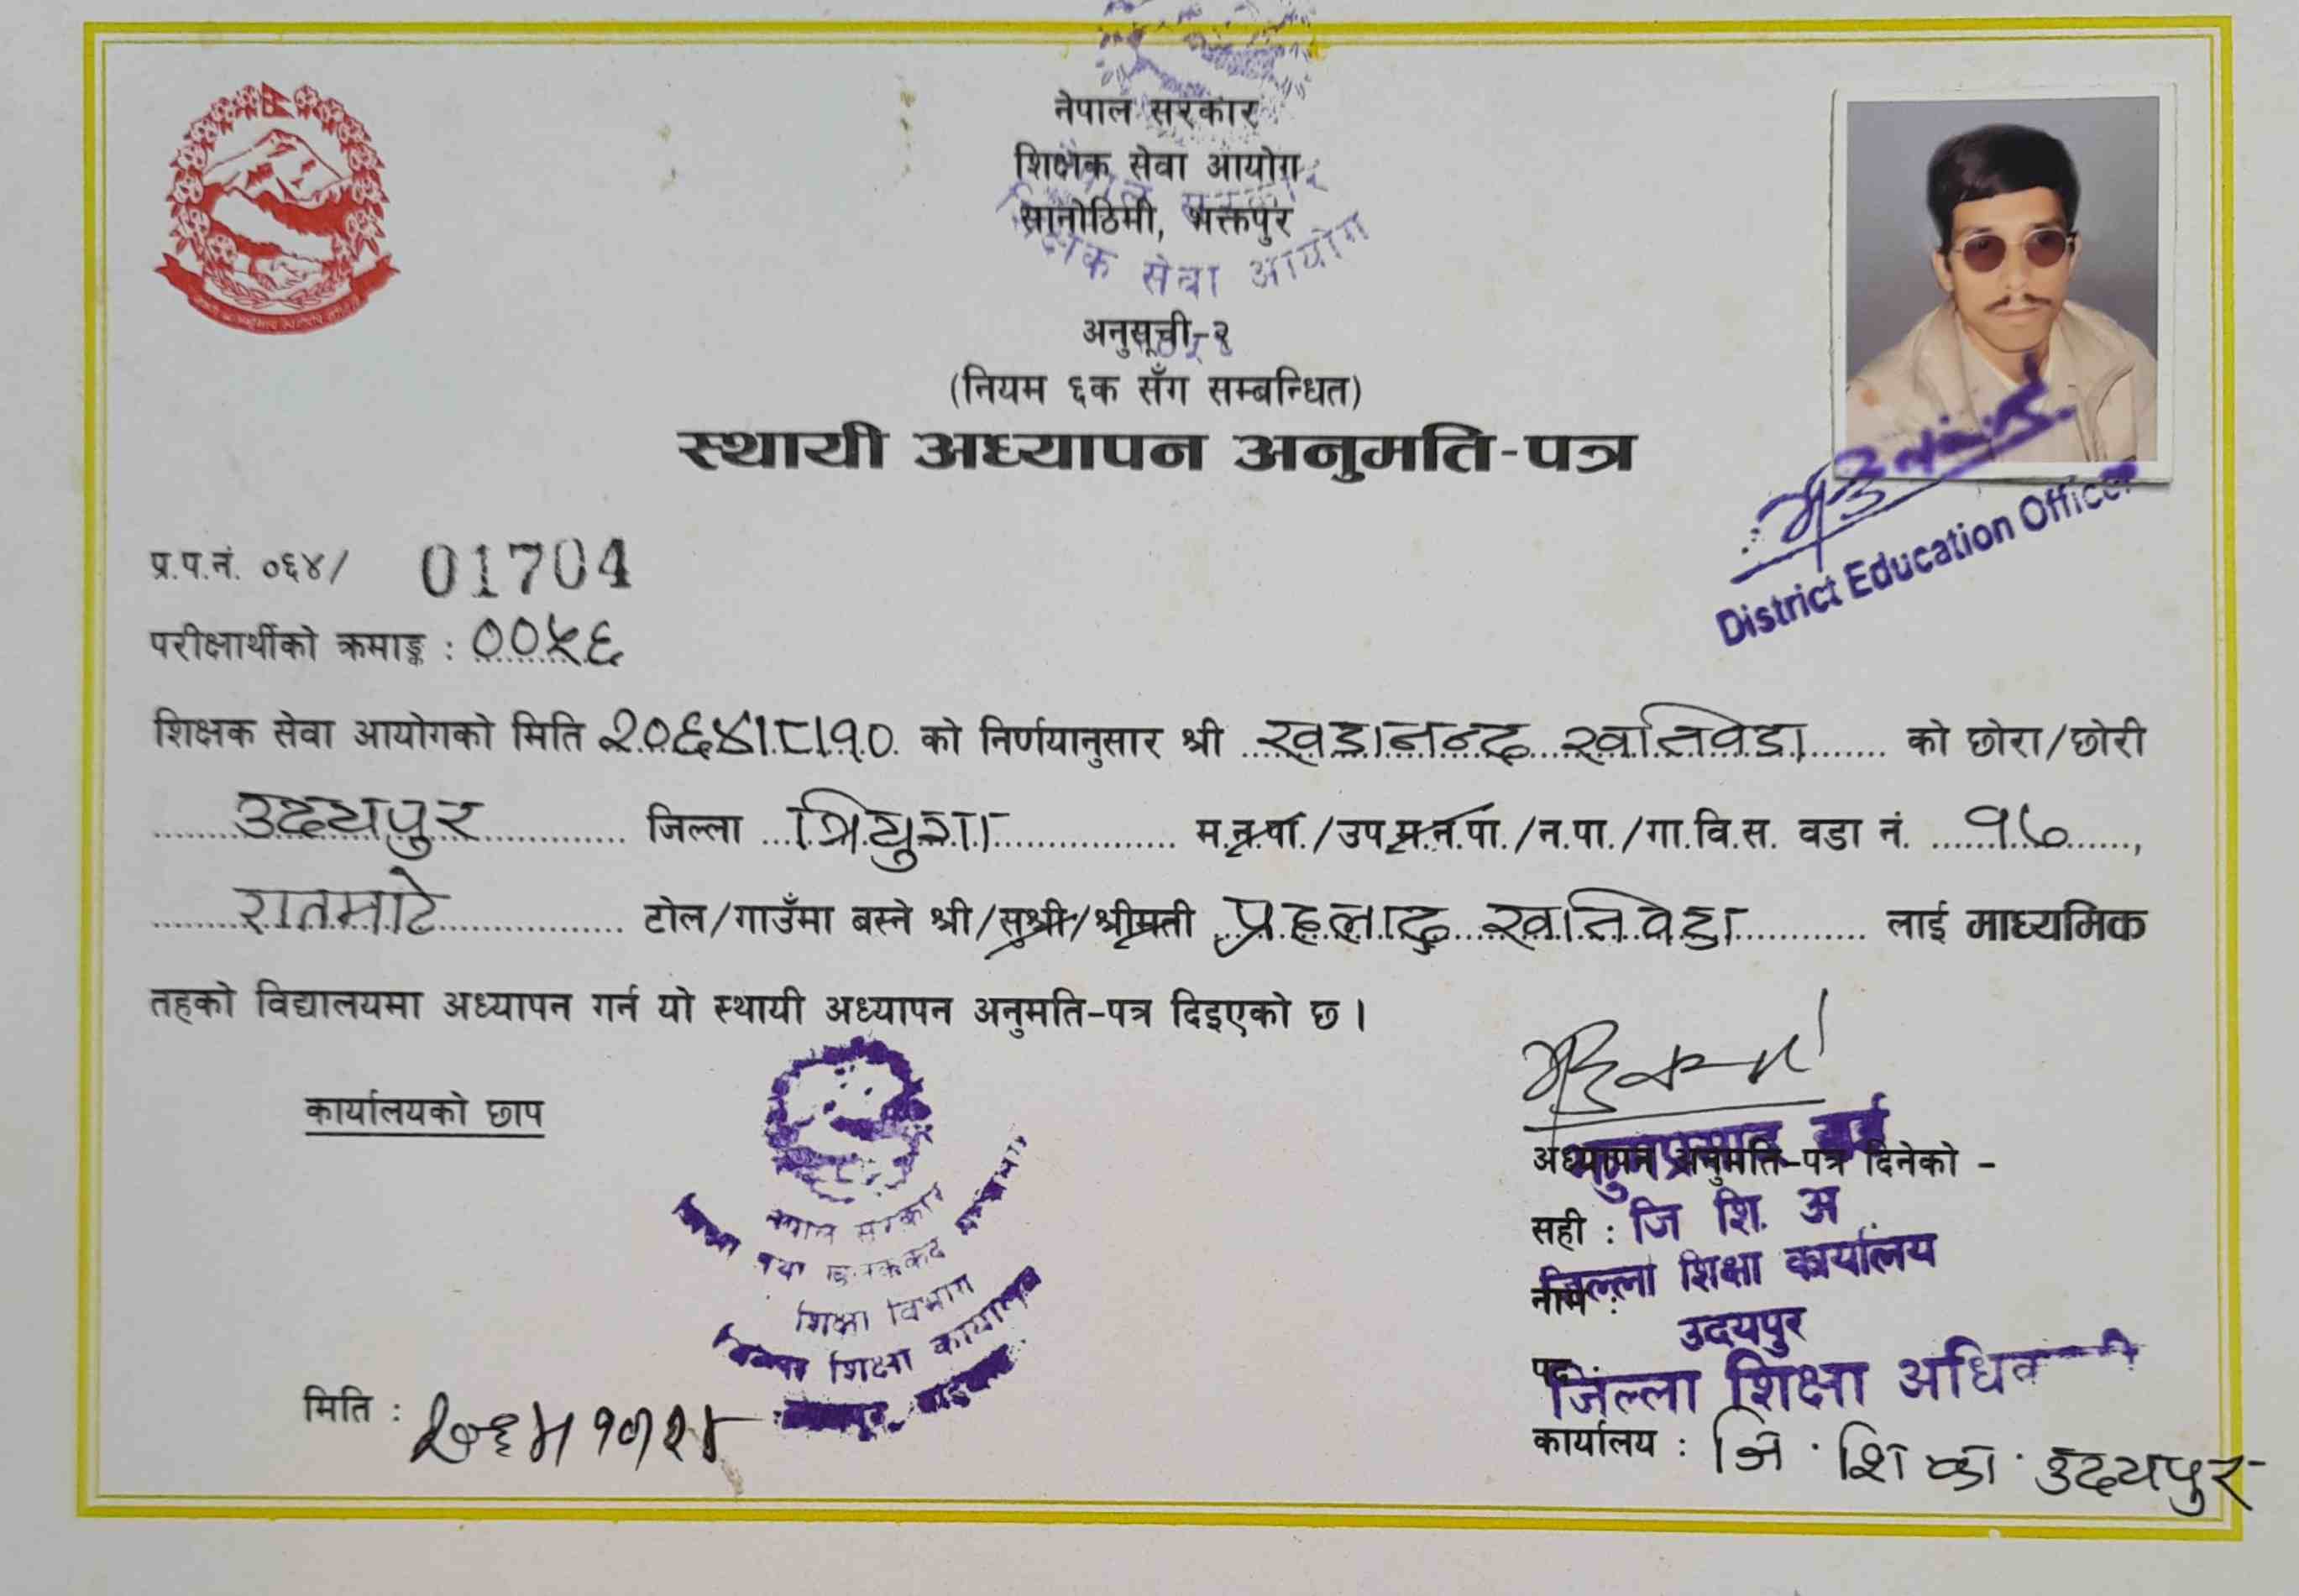 नेपाल सरकार
शिक्षक सेवा आयोग
सानोठिमी, भक्तपुर
शिक्षक सेवा आयोग
अनुसूची-२
(नियम ६क सँग सम्बन्धित)
स्थायी अध्यापन अनुमति-पत्र
District Education Officer
प्र.प.नं. ०६४/ 01704
परीक्षार्थीको क्रमाङ्क : ००५६
शिक्षक सेवा आयोगको मिति २०६४।८।१० को निर्णयानुसार श्री खडानन्द खतिवडा को छोरा/छोरी
उदयपुर जिल्ला त्रियुगा म.न.पा./उप.म.न.पा./न.पा./गा.वि.स. वडा नं. १७,
रातमाटे टोल/गाउँमा बस्ने श्री/सुश्री/श्रीमती प्रहलाद खतिवडा लाई माध्यमिक
तहको विद्यालयमा अध्यापन गर्न यो स्थायी अध्यापन अनुमति-पत्र दिइएको छ ।
कार्यालयको छाप
नेपाल सरकार
शिक्षा विभाग
जिल्ला शिक्षा कार्यालय
अध्यापन अनुमति-पत्र दिनेको -
सही : जि शि. अ
जिल्ला शिक्षा कार्यालय
नाम :
उदयपुर
पद :
जिल्ला शिक्षा अधिकारी
मिति :
कार्यालय : जि. शि. का. उदयपुर